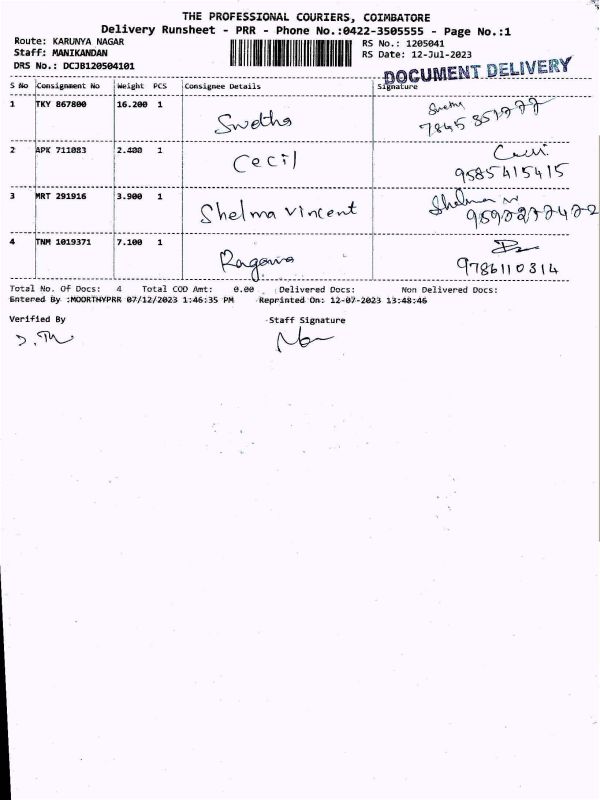 THE PROFESSIONAL COURIERS, COIMBATORE
Delivery Runsheet - PRR - Phone No.:0422-3505555 - Page No.:1
Route: KARUNYA NAGAR
RS No.: 1205041
Staff: MANIKANDAN
RS Date: 12-Jul-2023
DRS No.: DCJB120504101
DOCUMENT DELIVERY
S No Consignment No Weight PCS Consignee Details Signature
1 TKY 867800 16.200 1 Swetha Swetha
2 APK 711083 2.400 1 Cecil Cecil
9585415415
3 MRT 291916 3.900 1 Shelma Vincent Shelma
4 TNM 1019371 7.100 1
9786110314
Total No. Of Docs: 4 Total COD Amt: 0.00 Delivered Docs: Non Delivered Docs:
Entered By :MOORTHYPRR 07/12/2023 1:46:35 PM Reprinted On: 12-07-2023 13:48:46
Verified By Staff Signature